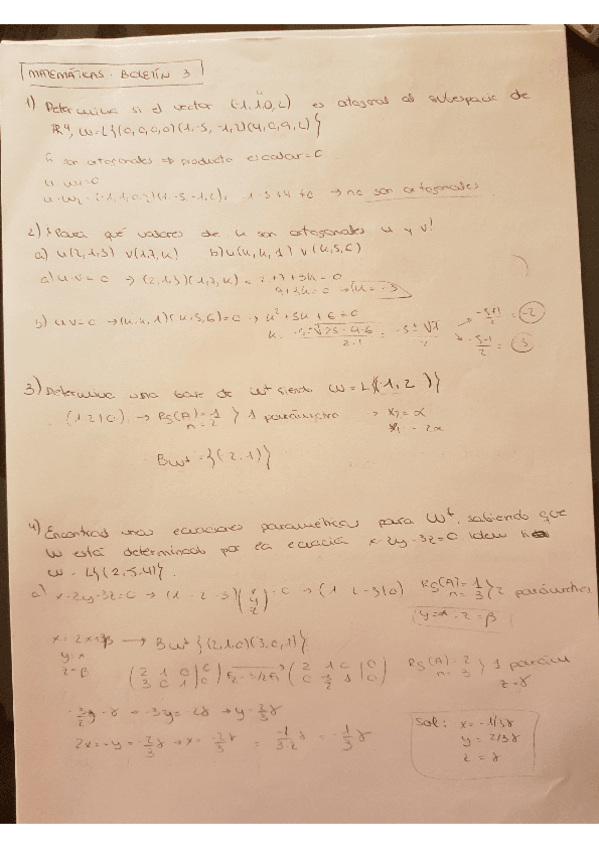 MATEMÁTICAS. BOLETÍN 3
1) Determina si el vector (-1,1,0,2) es ortogonal al subespacio de
R⁴, W=L{(0,0,0,0)(1,-5,-1,2)(4,0,9,2)}
son ortogonales ⇒ producto escalar=0
u·w₁=0
u·w₂=(-1,1,0,2)(1,-5,-1,2)= -1-5+4≠0 → no son ortogonales
2) ¿Para qué valores de k son ortogonales u y v?
a) u(2,1,3) v(1,7,k) b) u(k,k,1) v(k,5,6)
a) u·v=0 → (2,1,3)(1,7,k)= 2+7+3k=0
9+3k=0 → k=-3
b) u·v=0 → (k,k,1)(k,5,6)=0 → k²+5k+6=0
k= -5±√25-4·6 / 2·1 = -5±√1 / 2 → -5+1/2 = -2
→ -5-1/2 = 3
3) Determina una base de W⊥ siendo W=L{(-1,2)}
(1 2|0) → Rg(A)=1 n=2 } 1 parámetro → x₂=α
x₁=-2α
BW⊥={(-2,1)}
4) Encontrar unas ecuaciones paramétricas para W⊥, sabiendo que
W está determinado por la ecuación x-2y-3z=0 Idem
W=L{(2,5,4)}.
a) x-2y-3z=0 → (1 -2 -3)(x y z)=0 → (1 -2 -3|0) Rg(A)=1 n=3 } 2 parámetros
y=α z=β
x=2α+3β → BW={(2,1,0)(3,0,1)}
y=α
z=β
(2 1 0|0 3 0 1|0) F₂-3/2F₁ (2 1 0|0 0 -3/2 1|0) Rg(A)=2 n=3 } 1 parám
z=γ
-3/2y=-γ → -3y=-2γ → y=2/3γ
2x=-y=-2/3γ → x=-2/3γ = -1/3·2γ = -1/3γ
Sol: x=-1/3γ
y=2/3γ
z=γ